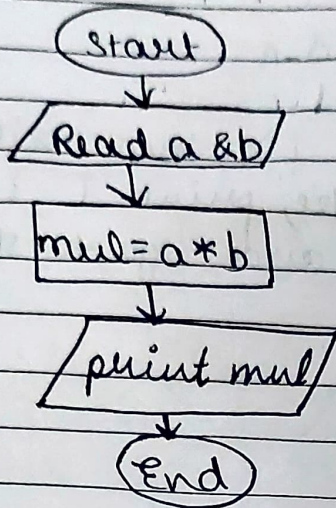 Start
Read a &b
mul=a*b
print mul
End